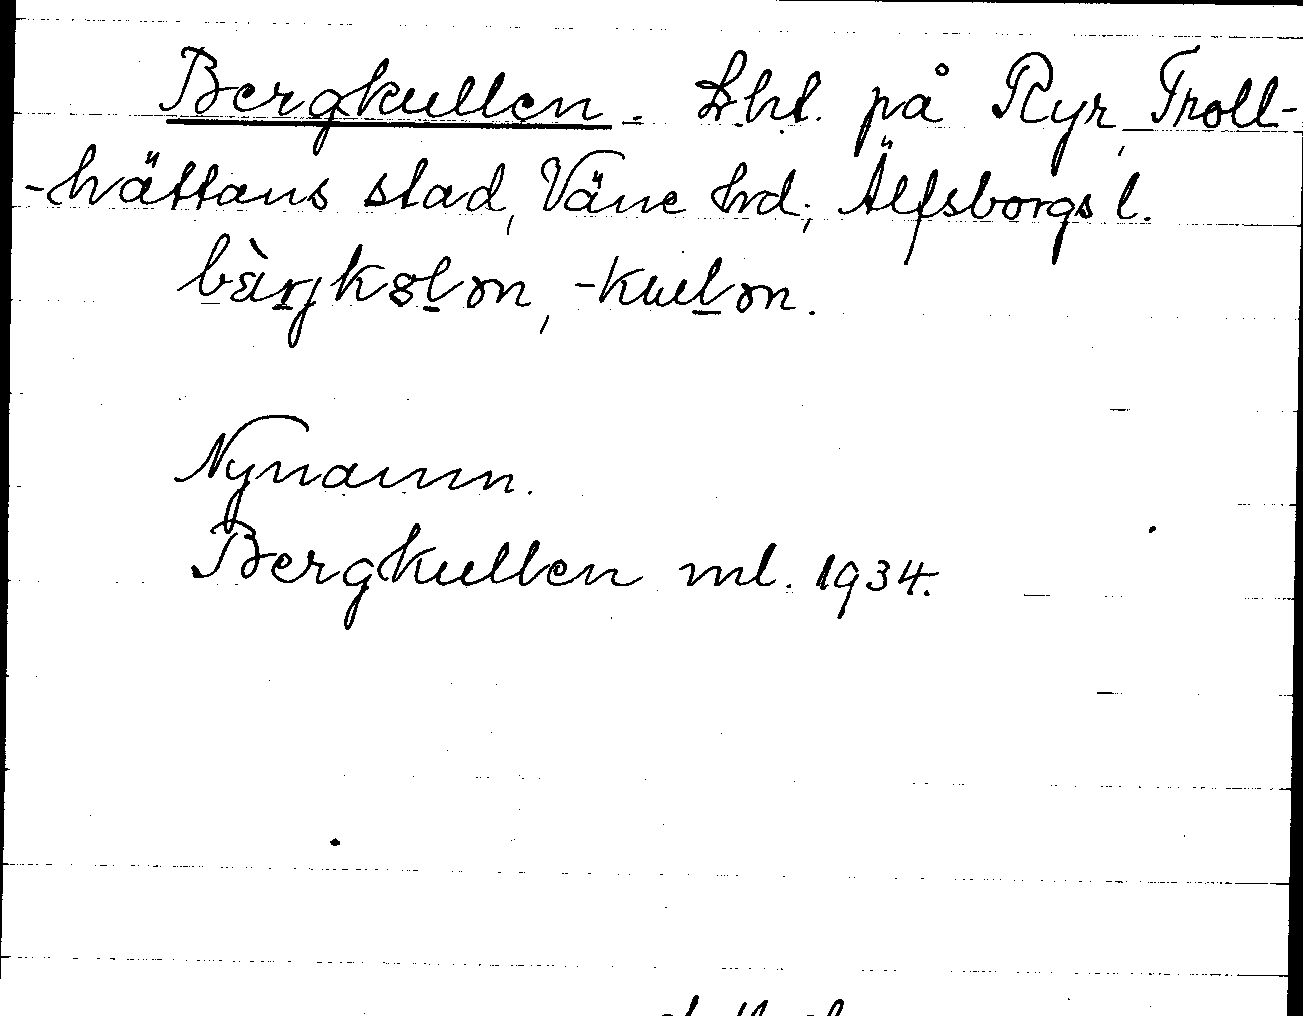 Bergkullen. Lht. på Ryr, Troll-
-hättans stad, Väne hd; Älfsborgs l.
bàrjkolən, -kulən.
Nynamn.
Bergkullen ml. 1934.